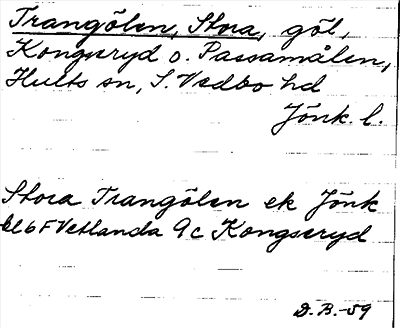 Trangölen, Stora, göl,
Kongseryd o. Passamålen,
Hults sn, S. Vedbo hd
Jönk. l.
Stora Trangölen ek Jönk
bl 6F Vetlanda 9c Kongseryd
D. B. -59